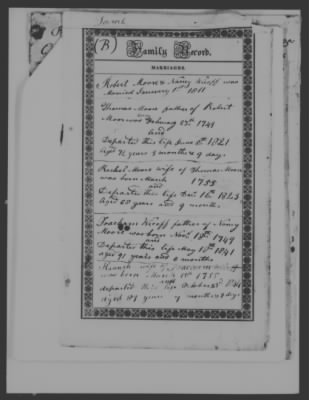 (B)
Family Record.
MARRIAGES.
Robert Moore & Nancy was
Married January 1st 1811
Thomas Moore father of Robert
Moore was Febuary 25th 1749
and
Departed this life June 8th 1821
Aged 72 years 3 months & 9 days
Rachel Moore wife of Thomas Moore
was born March 1755
and
Departed this life Dec 16th 1823
Aged 68 years and 9 months
father of Nancy
Moore was born Novr 1749
and
Departed this life May 18th 1841
aged 91 years and 6 months
Hannah wife of
was born March 1755
and
departed this life October 23d 1841
aged years 7 months & days